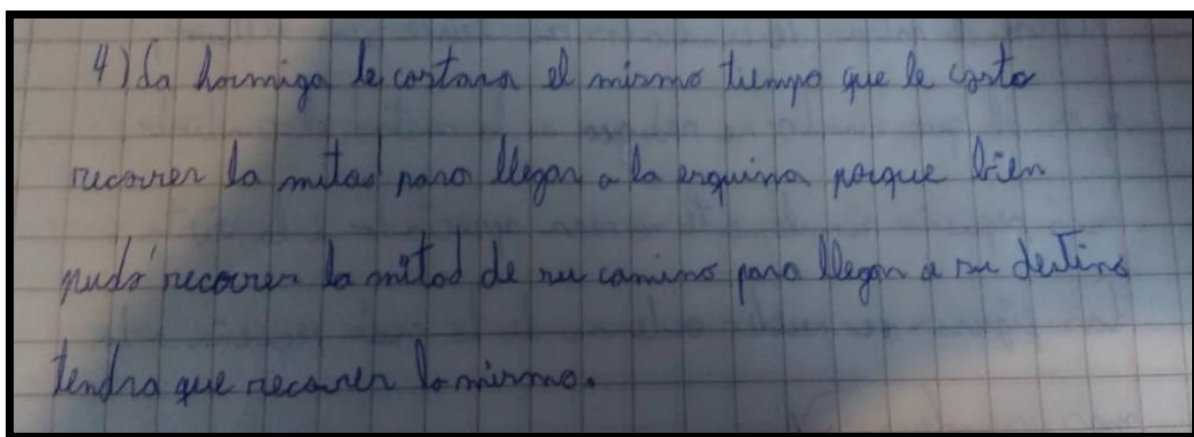 4) La hormiga le costara el mismo tiempo que le costo
recorrer la mitad para llegar a la esquina porque bien
pudó recorrer la mitad de su camino para llegar a su destino
tendra que recorrer lo mismo.